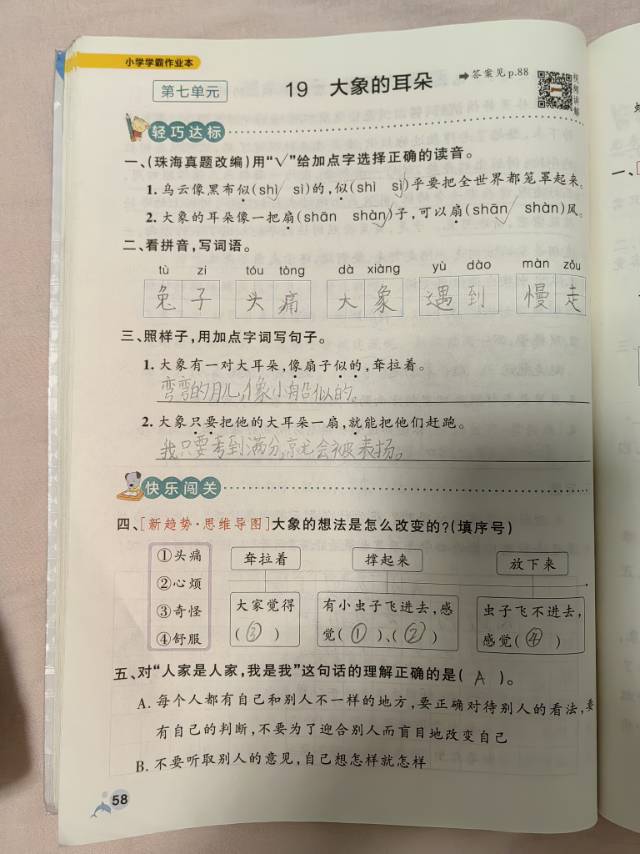 小学学霸作业本
第七单元
19 大象的耳朵
➡答案见p.88
视频讲解
轻巧达标
一、(珠海真题改编)用“√”给加点字选择正确的读音。
1. 乌云像黑布似(shì√ sì)的,似(shì sì√)乎要把全世界都笼罩起来。
2. 大象的耳朵像一把扇(shān shàn√)子,可以扇(shān√ shàn)风。
二、看拼音,写词语。
tù zi tóu tòng dà xiàng yù dào màn zǒu
兔子 头痛 大象 遇到 慢走
三、照样子,用加点字词写句子。
1. 大象有一对大耳朵,像扇子似的,耷拉着。
弯弯的月儿,像小船似的。
2. 大象只要把他的大耳朵一扇,就能把他们赶跑。
我只要考到满分,就会被表扬。
快乐闯关
四、[新趋势·思维导图]大象的想法是怎么改变的?(填序号)
①头痛
②心烦
③奇怪
④舒服
耷拉着 撑起来 放下来
大家觉得 有小虫子飞进去,感 虫子飞不进去,
(③) 觉(①)、(②) 感觉(④)
五、对“人家是人家,我是我”这句话的理解正确的是(A)。
A. 每个人都有自己和别人不一样的地方,要正确对待别人的看法,要
有自己的判断,不要为了迎合别人而盲目地改变自己
B. 不要听取别人的意见,自己想怎样就怎样
58